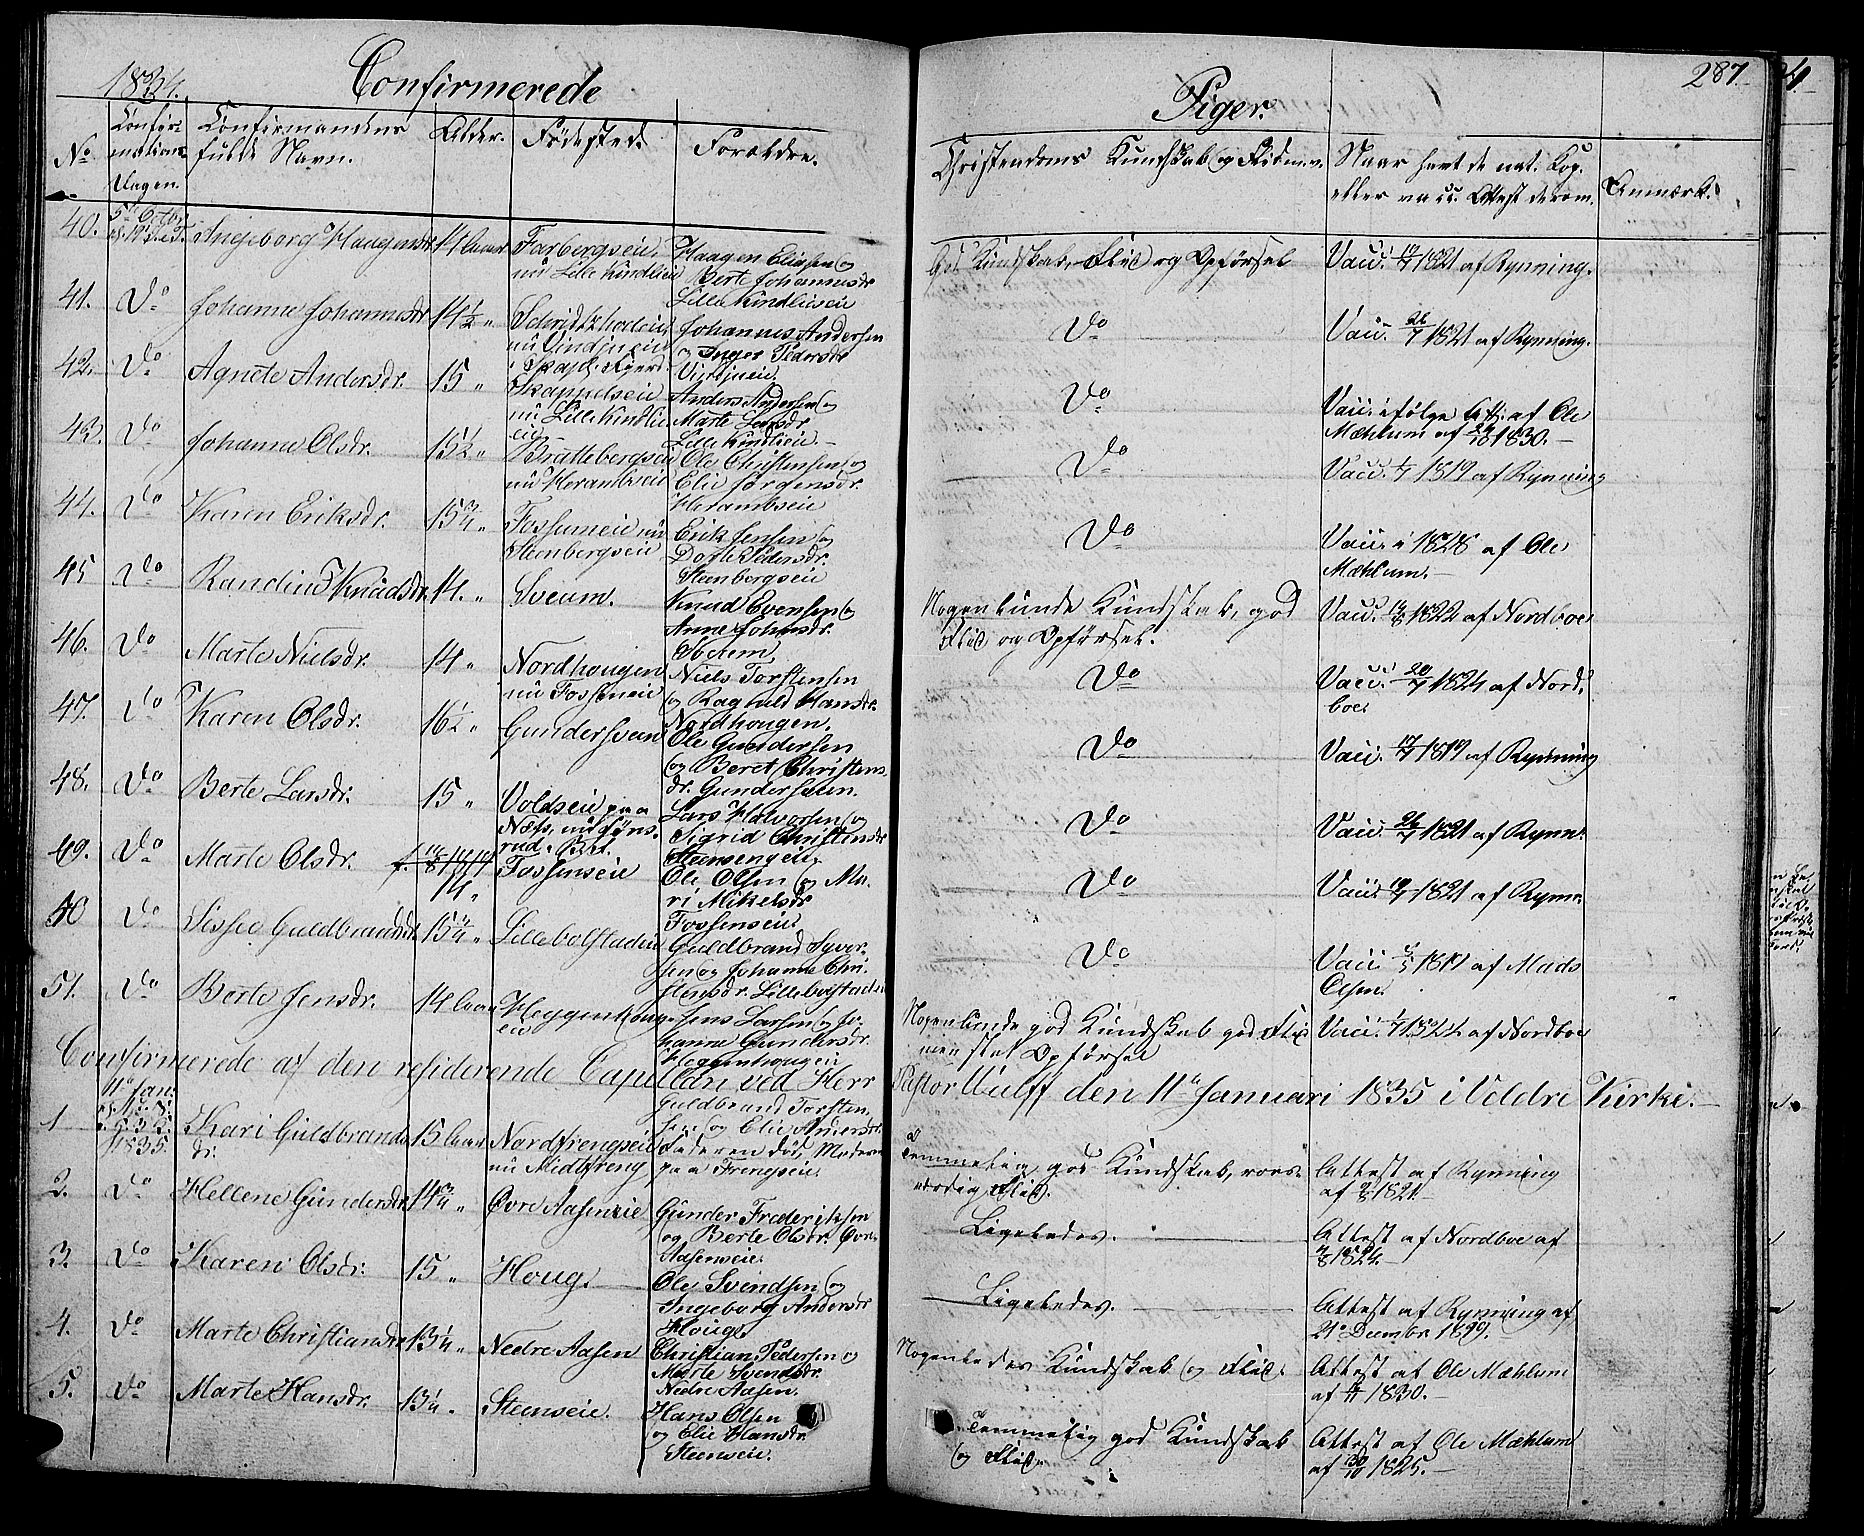 1834.
Confirmerede
Piger.
287.
No
Confir-
mations
Dagen.
Confirmandens
fulde Navn.
Alder.
Fødested.
Forældre.
Christendoms Kundskab og Flid m.v.
Naar havt de nat. Kop.
eller vacc. Attest derom.
Anmærk.
40.
5te Octbr
Ingeborg Haagensdr
14 Aar
Farbergseie,
nu Lille Kindlieie
Haagen Eliassen og
Berte Johannesdr
Lille Kindlieeie
God Kundskab, Flid og Opførsel
Vacc. 1821 af Rynning.
41.
Do
Johanne Johannesdr
14 1/2 "
Johannes Andersen
og Inger Pedersdr
Do
Vacc. 26/7 1821 af Rynning.
42.
Do
Agnete Andersdr.
15 "
Skappelseie
nu Lille Kindlie
eie
Anders Andersen og
Marte Larsdr
Lille Kindlieie.
Do
Vacc. ifølge Att. af Ole
Mæhlum af 24/10 1830.
43.
Do
Johanne Olsdr.
15 1/2 "
Brattebergseie
nu Herambseie
Ole Christensen og
Elie Jørgensdr.
Herambseie
Do
Vacc. 1819 af Rynning
44.
Do
Karen Eriksdr.
15 3/4 "
Fossumeie nu
Steenbergseie
Erik Jensen og
Dorte Pedersdr.
Steenbergseie
Do
Vacc. i 1828 af Ole
Mæhlum.
45
Do
Randine Knudsdr.
14. "
Sveum.
Knud Evensen og
Anne Johnsdr.
Nogenlunde Kundskab, god
Flid og Opførsel.
Vacc. 1822 af Nordboe
46.
Do
Marte Nielsdr.
14 "
Nordhougen
nu Fosseneie
Niels Torstensen
og Ragnild Hansdr.
Nordhougen.
Do
Vacc. 20/7 1824 af Nord-
boe
47.
Do
Karen Olsdr.
16 1/2 "
Gundersveen
Ole Gundersen
og Beret Christens
dr. Gundersveen.
Do
Vacc. 17/7 1819 af Rynning
48.
Do
Berte Larsdr.
15 "
Voldseie paa
Næs, nu Jøns-
rud i Brt.
Lars Halvorsen og
Sigrid Christensdr
Steensengeie
Do
Vacc. 26/7 1821 af Rynn.
49.
Do
Marte Olsdr.
14 "
Fosseneie
Ole Olsen og Ma-
ri Mikelsdr
Fosseneie
Do
Vacc. 1821 af Rynn.
50
Do
Sissee Guldbrandsdr.
15 3/4 "
Lillebolstadeie
Guldbrand Syver-
sen og Johanne Chri-
stensdr. Lillebolstadeie
Do
Vacc. 1819 af Mads
Olsen.
51.
Do
Berte Jensdr.
14 Aar
Heggenhoug-
eie
Jens Larsen og Jo-
hanne Gundersdr.
Heggenhougeie
Nogenlunde god Kundskab god Flid
men slet Opførsel
Vacc. 1822 af Nordboe
Confirmerede af den residerende Capellan ved Herr Pastor Wulff den 11te Januari 1835 i Veldre Kirke.
1
11te Jan.
1835.
Kari Guldbrands
dr.
15 Aar
Nordfrengseie
nu Midtfreng
Guldbrand Torsten-
sen og Elie Andersdr
Faderen død, Moderen
paa Frengseie.
Temmelig god Kundskab, roes-
værdig Flid.
Attest af Rynning
af 1821.
2.
Do
Hellene Gundersdr
14 3/4 "
Øvre Aaseneie
Gunder Frederiksen
og Berte Olsdr. Øvre
Aaseneie.
Ligeledes.
Attest af Nordboe af
1824.
3.
Do
Karen Olsdr.
15 "
Houg.
Ole Svendsen og
Ingeborg Andersdr
Houg.
Ligeledes.
Attest af Rynning af
21de Decembr. 1819.
4.
Do
Marte Christiansdr
13 3/4 "
Nedre Aasen
Christian Pedersen og
Marte Svendsdr.
Nedre Aasen.
Nogenledes Kundskab og Flid.
Attest af Ole Mæhlum
af 1830.
5.
Do
Marte Hansdr.
13 3/4 "
Steenseie.
Hans Olsen
og Elie Hansdr.
Steenseie.
Temmelig god Kundskab
og Flid.
Attest af Ole Mæhlum
af 30/10 1825.